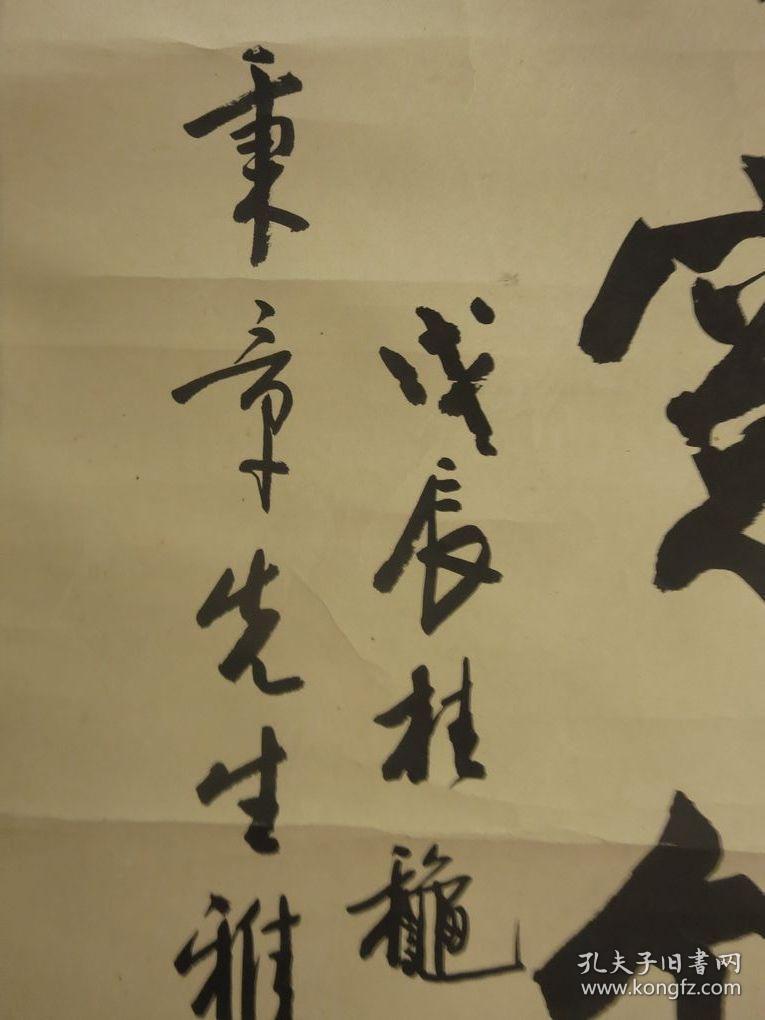 戊辰桂龝
秉章先生雅
孔夫子旧書网
www.kongfz.com